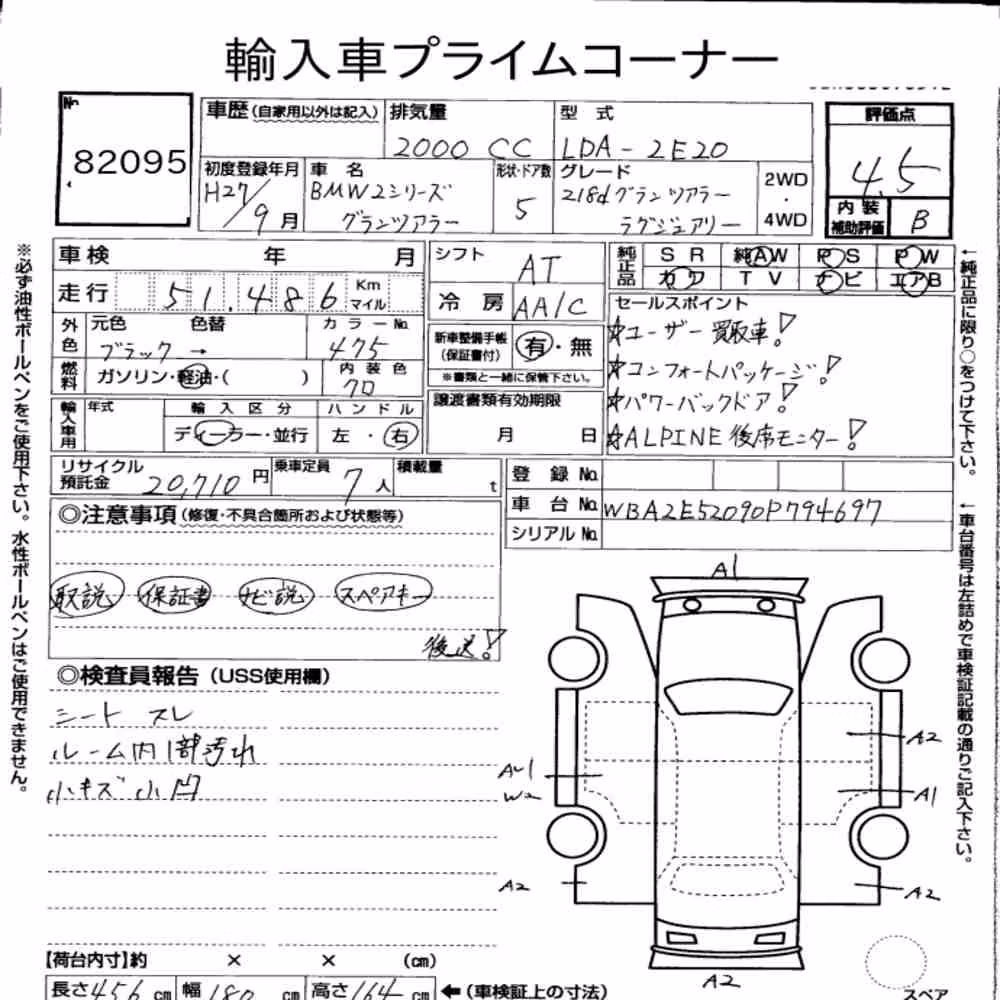 輸入車プライムコーナー
№
82095
車歴(自家用以外は記入)
排気量
2000 CC
型 式
LDA-2E20
評価点
4.5
内装補助評価
B
初度登録年月
H27/9月
車 名
BMW2シリーズ
グランツアラー
形状・ドア数
5
グレード
218dグランツアラー
ラグジュアリー
2WD
・
4WD
車検 年 月
走行 51,486 Km
マイル
外色
元色 色替
ブラック →
カラーNo.
475
燃料
ガソリン・軽油・( )
内装色
70
輸入車用
年式
輸入区分
ディーラー・並行
ハンドル
左・右
シフト
AT
冷房
AA/C
新車整備手帳
(保証書付)
有・無
※書類と一緒に保管下さい。
譲渡書類有効期限
月 日
純正品
SR 純AW PS PW
カワ TV ナビ エアB
セールスポイント
☆ユーザー買取車!
☆コンフォートパッケージ!
☆パワーバックドア!
☆ALPINE後席モニター!
←純正品に限り○をつけて下さい。
リサイクル
預託金
20,710円
乗車定員
7人
積載量
t
登録No.
車台No. WBA2E52090P794697
シリアルNo.
←車台番号は左詰めで車検証記載の通りご記入下さい。
※必ず油性ボールペンをご使用下さい。水性ボールペンはご使用できません。
◎注意事項(修復・不具合箇所および状態等)
取説 保証書 ナビ説 スペアキー
後送!
◎検査員報告(USS使用欄)
シート スレ
ルーム内1部汚れ
小キズ 小凹
A1
A2
A1
AU1
W2
A2
A2
A2
スペア
【荷台内寸】約 × × (cm)
長さ456cm 幅180cm 高さ164cm ←(車検証上の寸法)